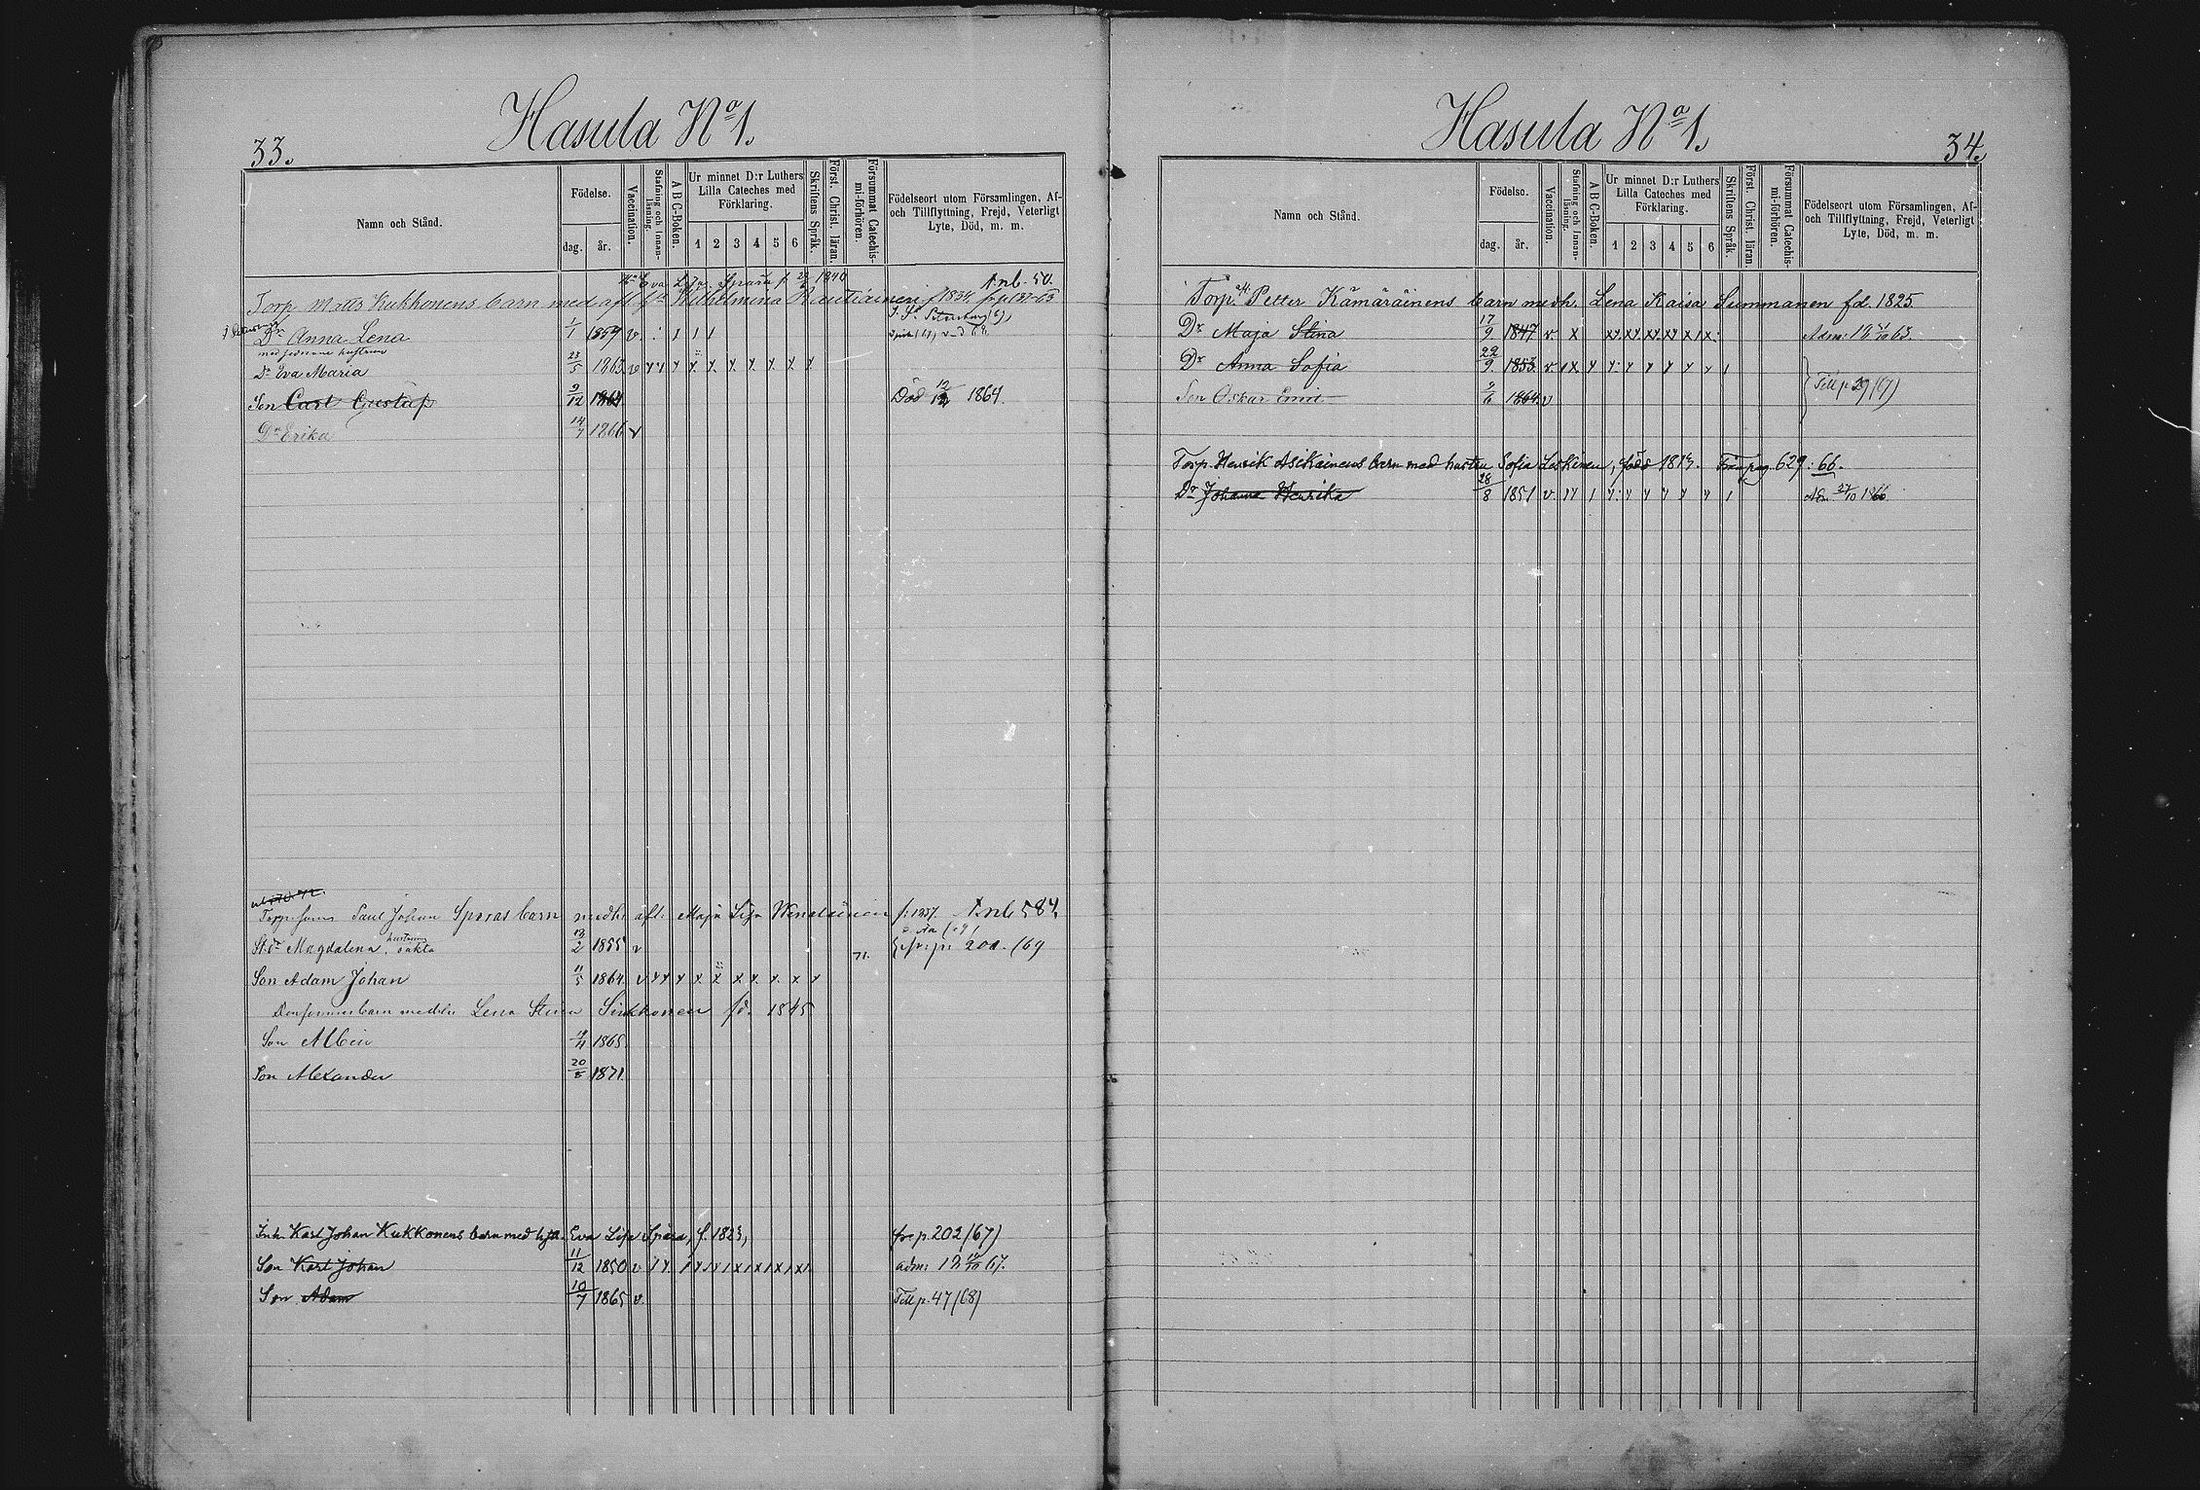 33.
Hasula No 1.
Namn och Stånd.
Födelse.
dag. år.
Vaccination.
Stafning och Innanläsning.
A B C-Boken.
Ur minnet D:r Luthers Lilla Cateches med Förklaring.
1 2 3 4 5 6
Skriftens Språk.
Först. Christ. läran.
Försummat Catechismi-förhören.
Födelseort utom Församlingen, Af- och Tillflyttning, Frejd, Veterligt Lyte, Död, m. m.
Eva Lisa Spåra f. 1840 A.nb. 50.
Torp. Matts Kukkonens barn med afl. Wilhelmina f 1834. fr p 137-63
S:t Petersburg
Dr Anna Lena 1/1 1859 v.
med sednare hustrun
Dr Eva Maria 23/5 1863 v
Son Carl Gustaf 9/12 1864 Död 1864.
Dr Erika 1866 v
Paul Johan Sporas barn medh. afl: Maja Lisa f: 1837. A.nb 584.
St.dr Magdalena hustruns oäkta 2 1855 v 71. fr: p: 201. (69
Son Adam Johan 11/5 1864. v
Densammes barn medh. Lena Stina Sinkkonen fd. 1845
Son Albin 1865
Son Alexander 20/8 1871.
Inh. Karl Johan Kukkonens barn med h. Eva Lisa Spåra, f. 1823, fr. p. 202 (67)
Son Karl Johan 11/12 1850 v adm: 67.
Son Adam 10/7 1865 v. Till p. 47 (68)
34.
Hasula No 1.
Namn och Stånd.
Födelse.
dag. år.
Vaccination.
Stafning och Innanläsning.
A B C-Boken.
Ur minnet D:r Luthers Lilla Cateches med Förklaring.
1 2 3 4 5 6
Skriftens Språk.
Först. Christ. läran.
Försummat Catechismi-förhören.
Födelseort utom Församlingen, Af- och Tillflyttning, Frejd, Veterligt Lyte, Död, m. m.
Torp. Petter Kämäräinens barn medh. Lena Kaisa Summanen fd. 1825.
Dr Maja Stina 17/9 1847 v. Adm: 63.
Dr Anna Sofia 22/9 1853 v
Son Oskar Emil 9/6 1864 v Till p 29 (67)
Torp. Henrik Asikainens barn med hustru Sofia Leskinen, född 1813. Från pag. 629: 66.
Dr Johanna Henrika 28/8 1851 v. Adm 27/10 1866